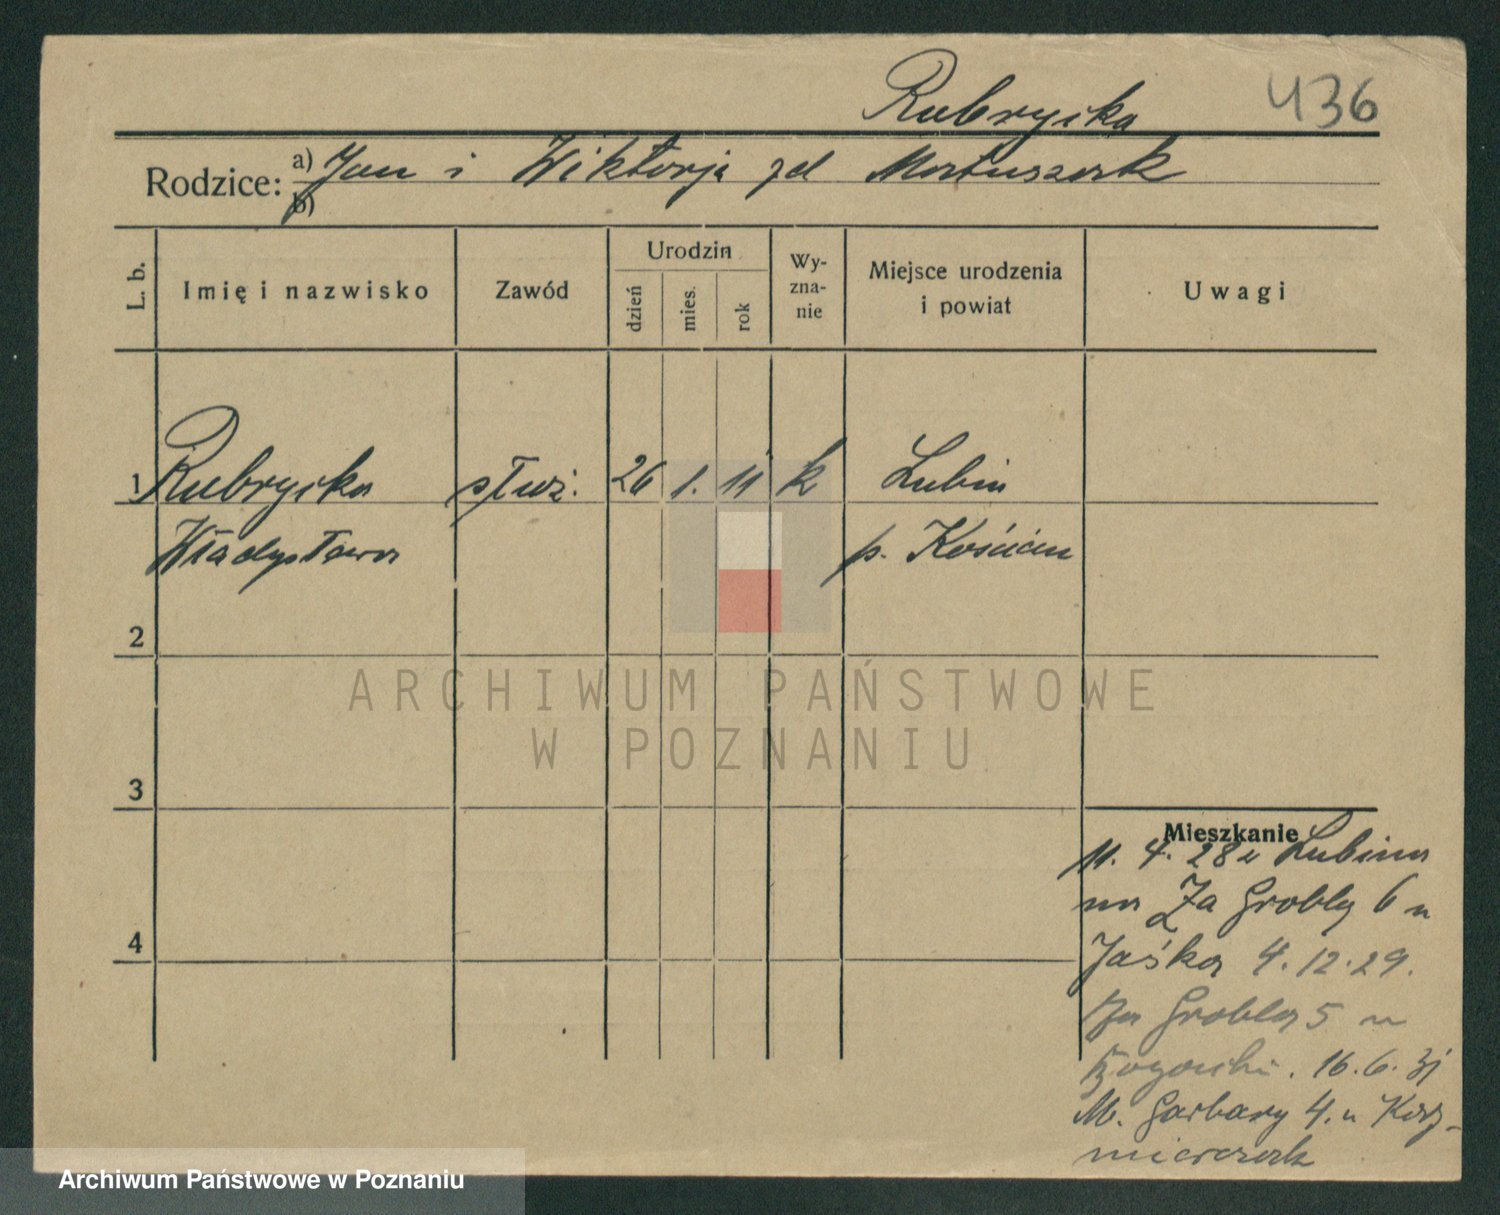 Rubrycka 436
Rodzice: a) Jan i Wiktorja zd Matuszak
b)
L. b. Imię i nazwisko Zawód Urodzin dzień mies. rok Wyznanie Miejsce urodzenia i powiat Uwagi
1 Rubrycka służ. 26 1. 11 k Lubin
Władysława p. Kościan
2
ARCHIWUM PAŃSTWOWE
W POZNANIU
3
Mieszkanie
11. 4. 28 z Lubina
na Za Groblą 6 u
Jaśka 4.12.29.
Za Groblą 5 u
16.6.31
M. Garbary 4. u Kaź-
mierczak
4
Archiwum Państwowe w Poznaniu